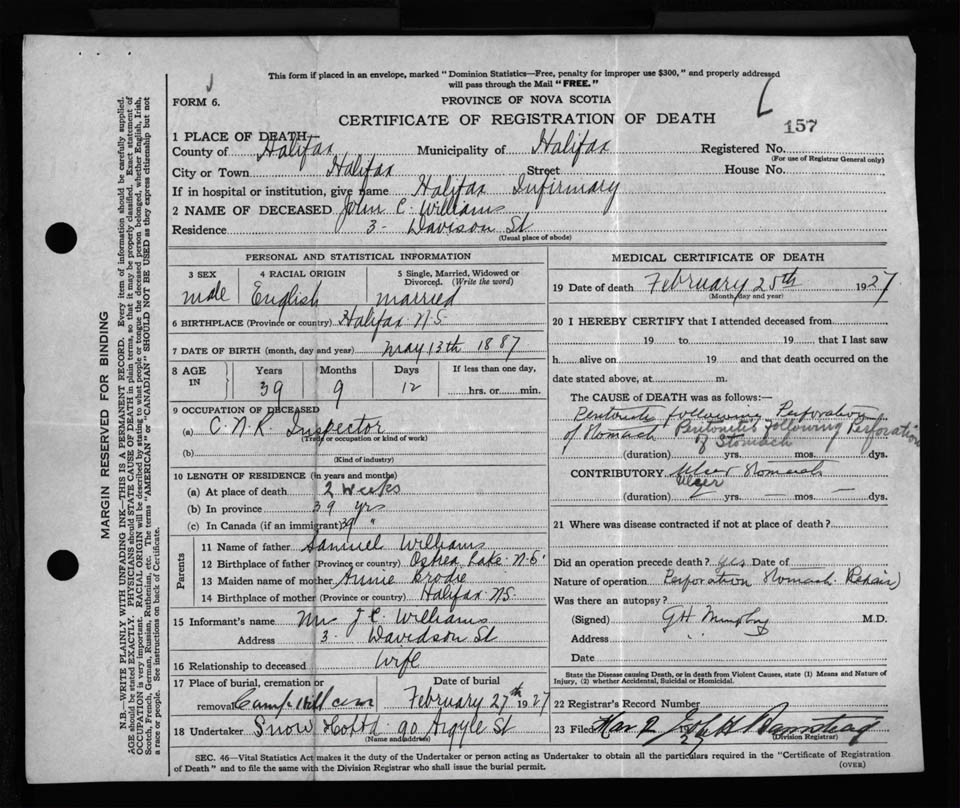 This form if placed in an envelope, marked "Dominion Statistics—Free, penalty for improper use $300," and properly addressed
will pass through the Mail "FREE."
FORM 6.
PROVINCE OF NOVA SCOTIA
CERTIFICATE OF REGISTRATION OF DEATH
157
1 PLACE OF DEATH—
County of Halifax Municipality of Halifax Registered No.
(For use of Registrar General only)
City or Town Halifax Street House No.
If in hospital or institution, give name Halifax Infirmary
2 NAME OF DECEASED John C. Williams
Residence 3 - Davison St
(Usual place of abode)
PERSONAL AND STATISTICAL INFORMATION
3 SEX 4 RACIAL ORIGIN 5 Single, Married, Widowed or Divorced. (Write the word)
male English married
6 BIRTHPLACE (Province or country) Halifax N.S.
7 DATE OF BIRTH (month, day and year) May 13th 1887
8 AGE IN Years Months Days If less than one day,
39 9 12 hrs. or min.
9 OCCUPATION OF DECEASED
(a) C.N.R. Inspector
(Trade or occupation or kind of work)
(b)
(Kind of industry)
10 LENGTH OF RESIDENCE (in years and months)
(a) At place of death 2 weeks
(b) In province 39 yrs
(c) In Canada (if an immigrant) 39 "
Parents
11 Name of father Samuel Williams
12 Birthplace of father (Province or country) Ostrea Lake N.S.
13 Maiden name of mother Annie Brodie
14 Birthplace of mother (Province or country) Halifax N.S.
15 Informant's name Mrs J.C. Williams
Address 3 - Davidson St
16 Relationship to deceased Wife
17 Place of burial, cremation or removal Camp Hill Cem
Date of burial February 27th 1927
18 Undertaker Snow 90 Argyle St
(Name and address)
MEDICAL CERTIFICATE OF DEATH
19 Date of death February 25th 1927
(Month, day and year)
20 I HEREBY CERTIFY that I attended deceased from
19 to 19 that I last saw
h alive on 19 and that death occurred on
date stated above, at m.
The CAUSE of DEATH was as follows:
Peritonitis following Perforation
of Stomach Peritonitis following Perforation
of Stomach
(duration) yrs. mos. dys.
CONTRIBUTORY Ulcer Stomach
Ulcer
(duration) yrs. — mos. — dys.
21 Where was disease contracted if not at place of death?
Did an operation precede death? yes Date of
Nature of operation Perforation Stomach (Repair)
Was there an autopsy?
(Signed) G H Murphy M.D.
Address " "
Date
State the Disease causing Death, or in death from Violent Causes, state (1) Means and Nature of Injury, (2) whether Accidental, Suicidal or Homicidal.
22 Registrar's Record Number
23 Filed Mar 2 1927
(Division Registrar)
SEC. 46—Vital Statistics Act makes it the duty of the Undertaker or person acting as Undertaker to obtain all the particulars required in the "Certificate of Registration
of Death" and to file the same with the Division Registrar who shall issue the burial permit.
(OVER)
MARGIN RESERVED FOR BINDING
N.B.—WRITE PLAINLY WITH UNFADING INK—THIS IS A PERMANENT RECORD. Every item of information should be carefully supplied.
AGE should be stated EXACTLY. PHYSICIANS should STATE CAUSE OF DEATH in plain terms, so that it may be properly classified. Exact statement of
OCCUPATION is very important. RACIAL ORIGIN will be described by stating to what people or tongue the deceased person belonged, whether English, Irish,
Scotch, French, German, Russian, Ruthenian, etc. The terms "AMERICAN" or "CANADIAN" SHOULD NOT BE USED as they express citizenship but not
a race or people. See instructions on back of Certificate.